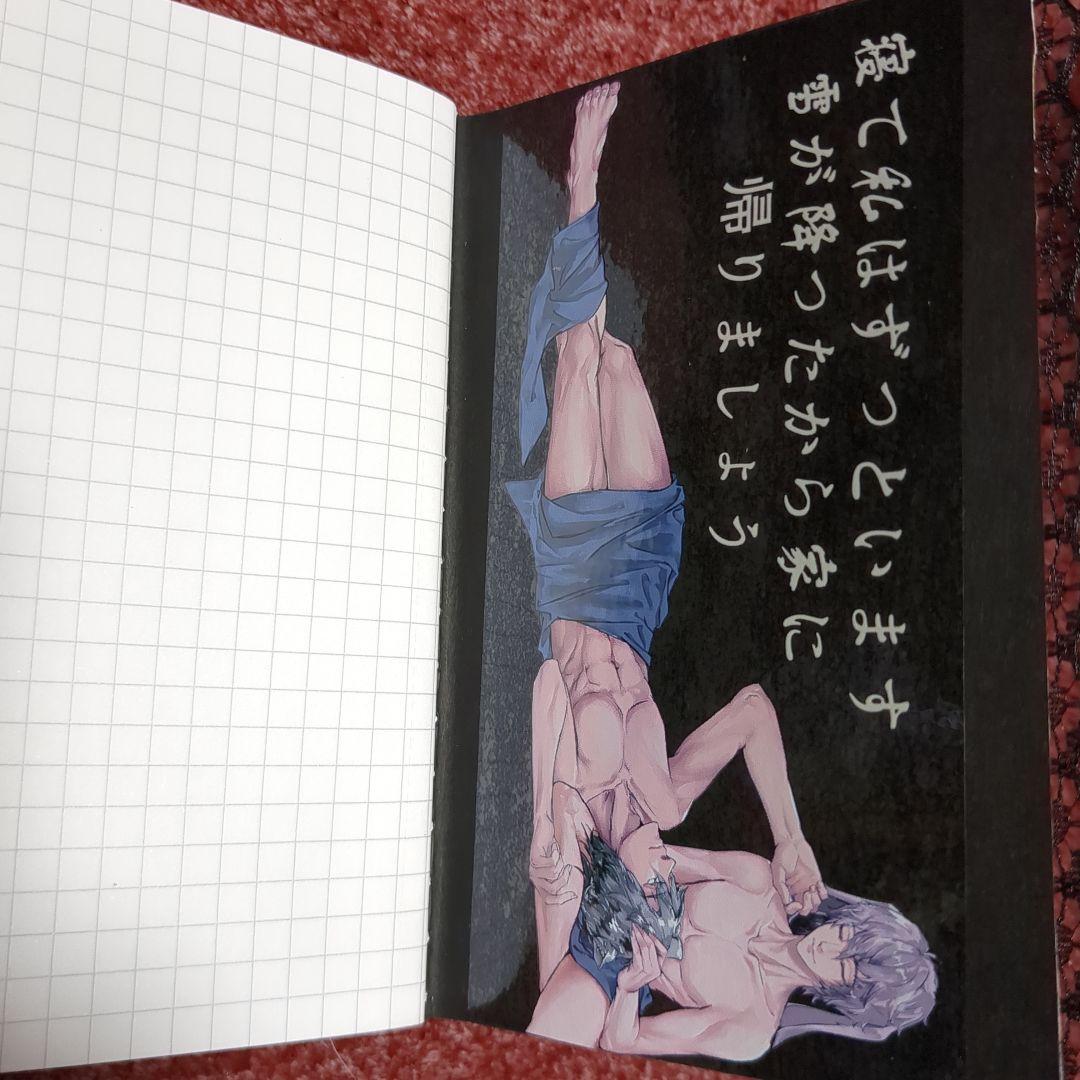 寝て私はずっといます
雪が降ったから家に
帰りましょう